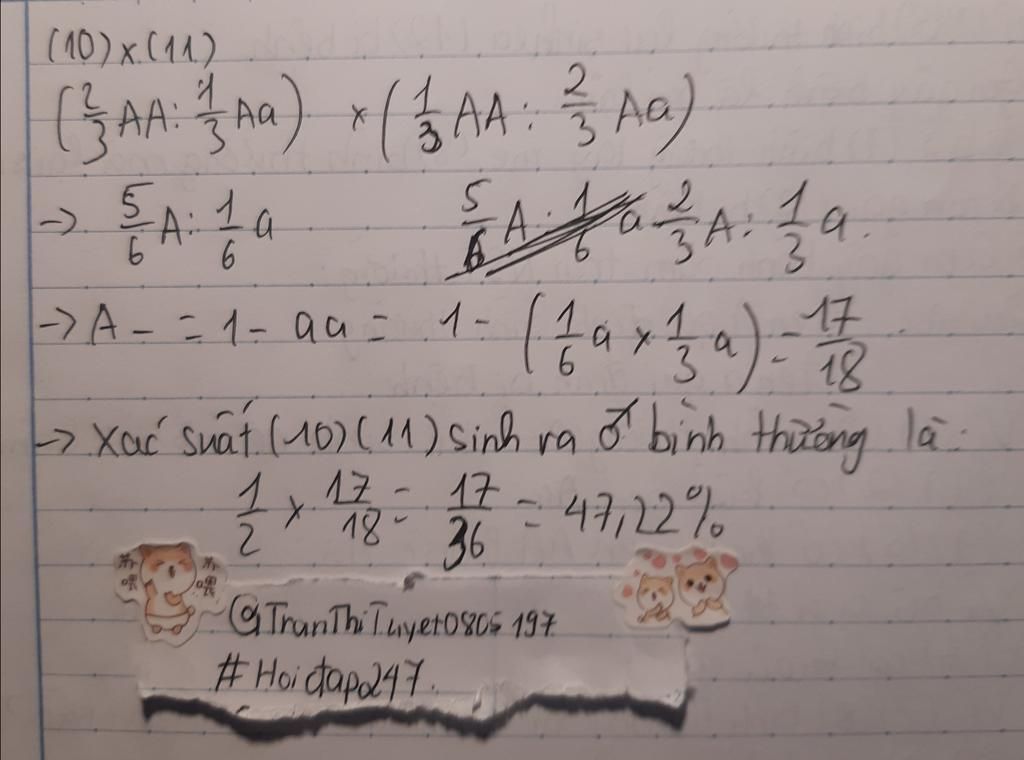 (10)x(11)
(2/3 AA: 1/3 Aa) x (1/3 AA: 2/3 Aa)
→ 5/6 A: 1/6 a 5/6 A: 1/6 a 2/3 A: 1/3 a.
→ A- = 1 - aa = 1 - (1/6 a x 1/3 a) = 17/18
→ Xác suất (10)(11) sinh ra ♂ bình thường là:
1/2 x 17/18 = 17/36 = 47,22%
苏喂 苏喂
@TranThiTuyet0805197
#Hoidap247.